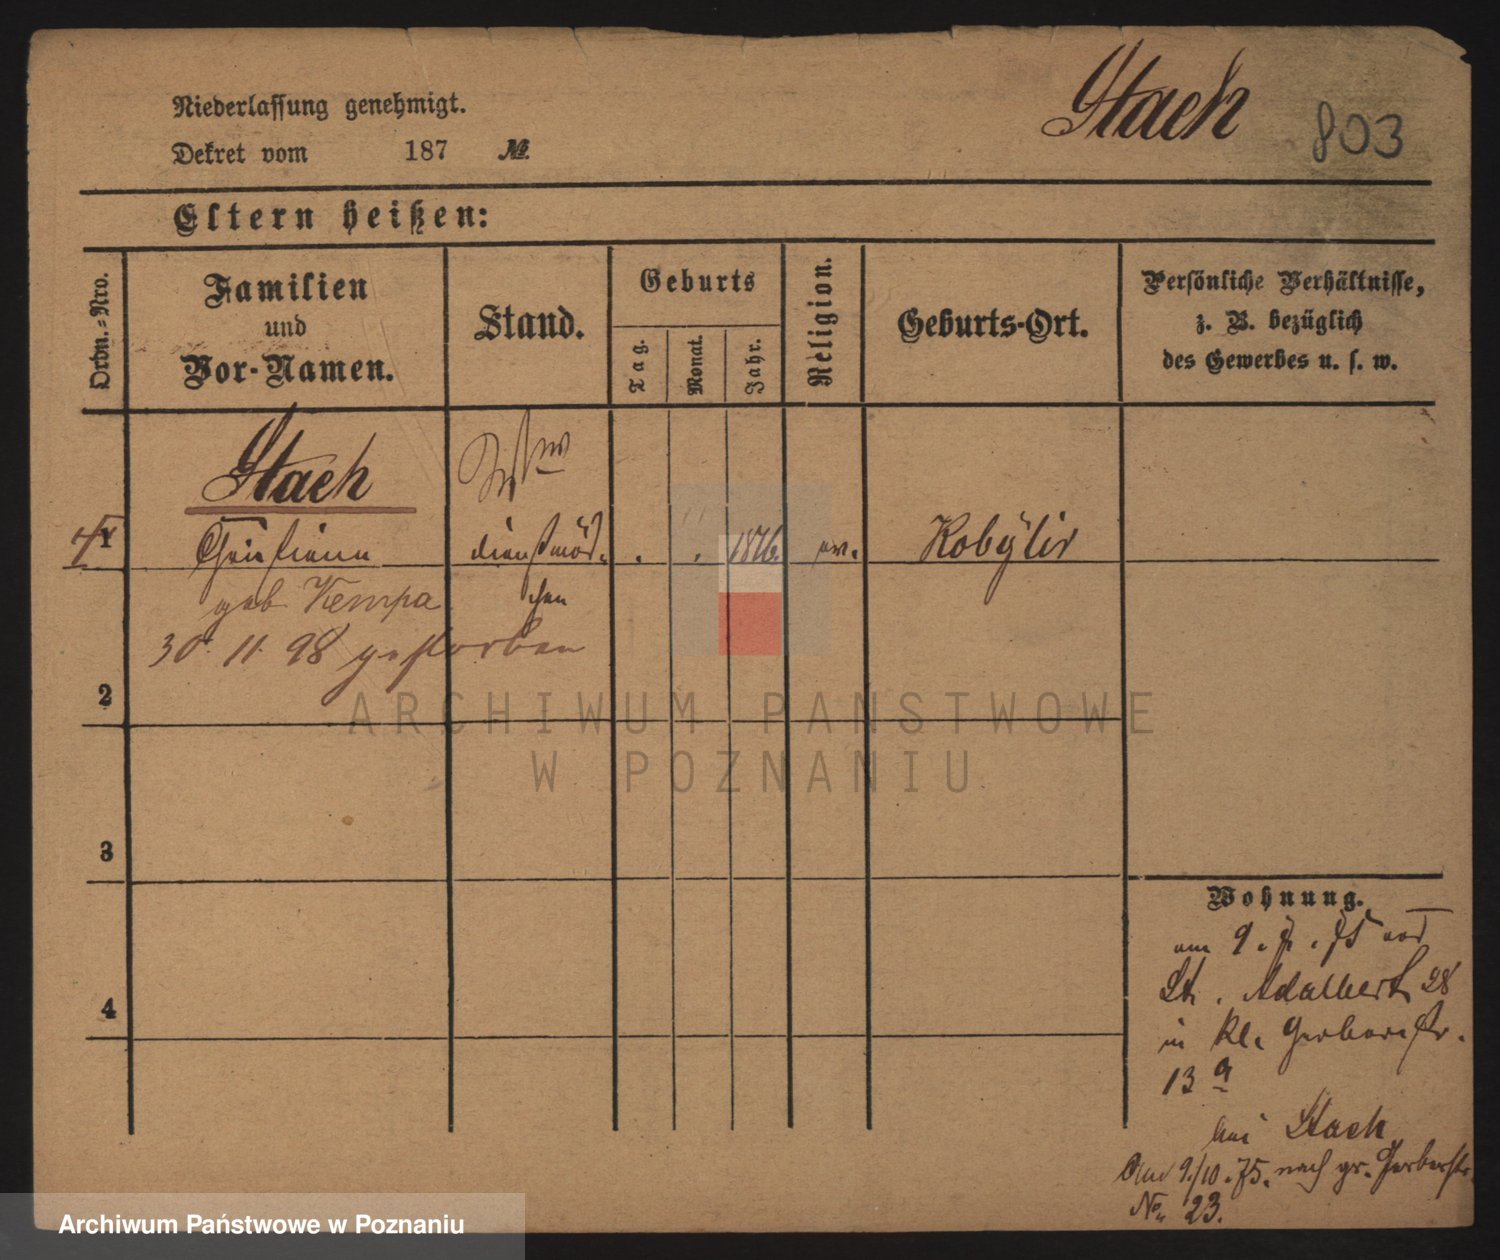 Niederlassung genehmigt.
Dekret vom 187 №
Stach 803
Eltern heißen:
Ordn.-Nro.
Familien
und
Vor-Namen.
Stand.
Geburts
Tag.
Monat.
Jahr.
Religion.
Geburts-Ort.
Persönliche Verhältnisse,
z. B. bezüglich
des Gewerbes u. s. w.
Stach
1 Christiana dienstmäd- . . ev. Kobylir
geb Kempa chen
30. 11. 98 gestorben
2
3
4
Wohnung.
am 9. 7. 75 von
St. Adalbert 28
in kl. Gerberstr.
13 a
bei Stach
Am 9./10. 75. nach gr. Gerberstr.
No. 23.
ARCHIWUM PAŃSTWOWE
W POZNANIU
Archiwum Państwowe w Poznaniu